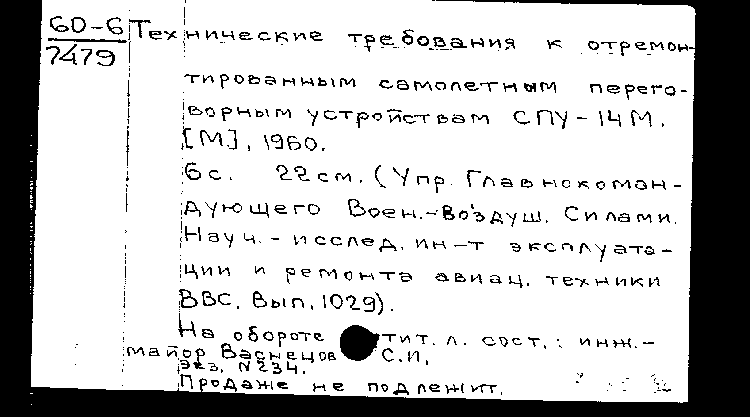 60-6
7479
Технические требования к отремон-
тированным самолетным перего-
ворным устройствам СПУ-14М.
[М], 1960.
6с. 22см. (Упр. Главнокоман-
дующего Воен.-Воздуш. Силами.
Науч.-исслед. ин-т эксплуата-
ции и ремонта авиац. техники
ВВС. Вып. 1029).
На обороте тит. л. сост.: инж.-
майор Васнецов С.И.
Экз. N234.
Продаже не подлежит.